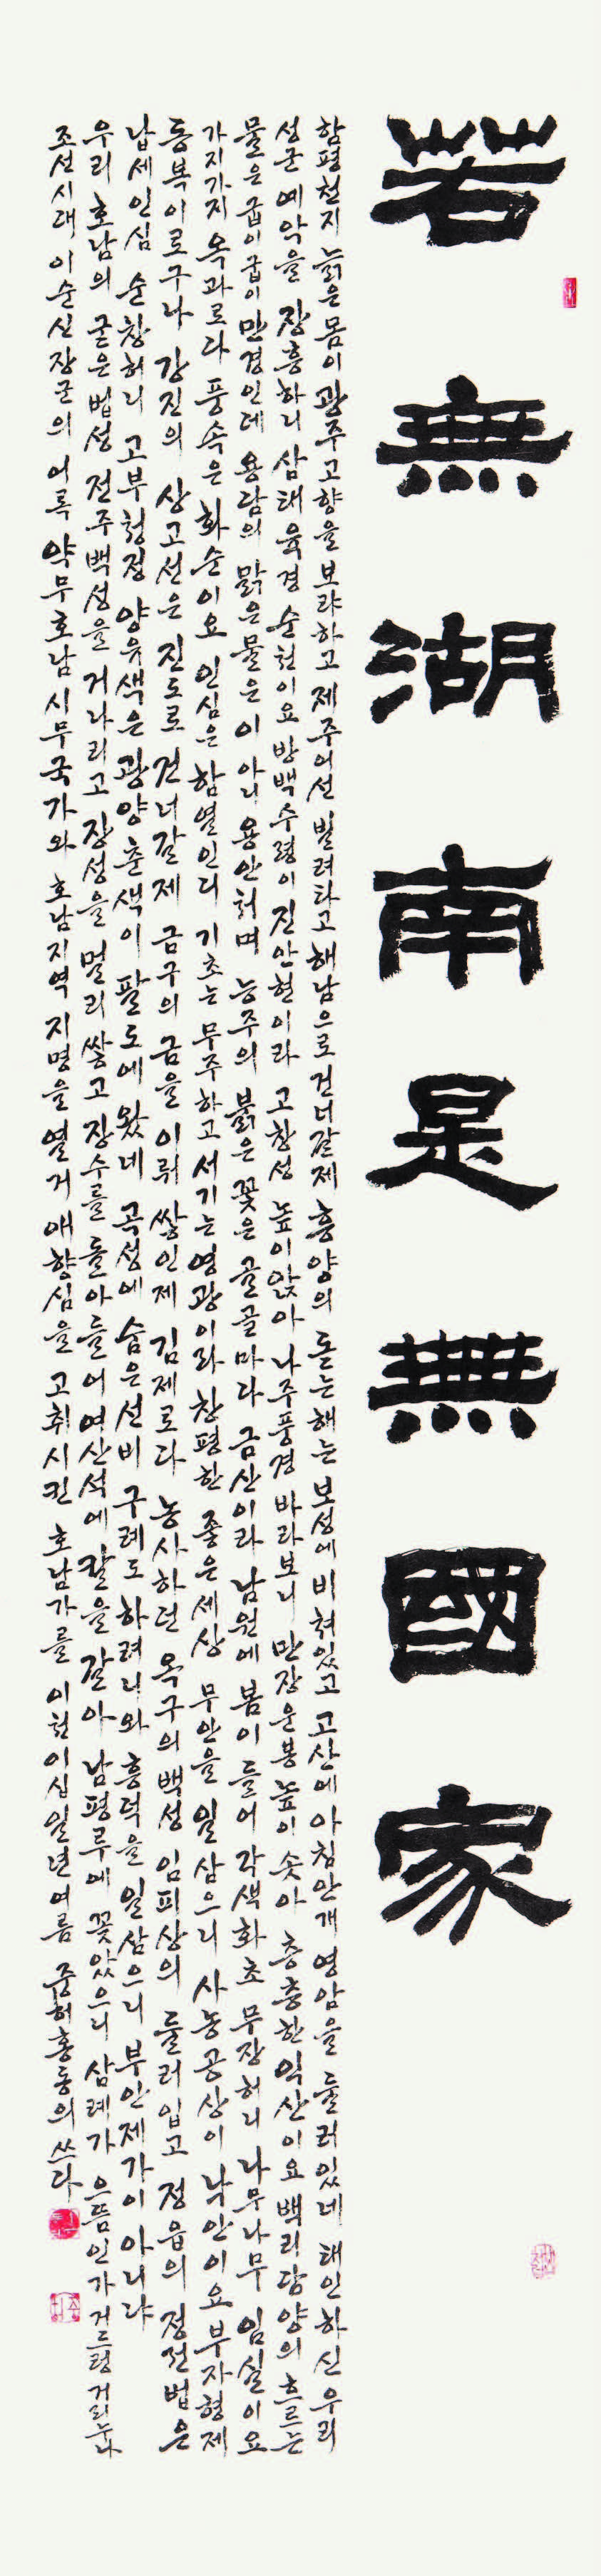 若無湖南是無國家
함평천지 늙은몸이 광주고향을 보랴하고 제주어선 빌려타고 해남으로 건너갈제 흥양의 돋는해는 보성에 비쳐있고 고산에 아침안개 영암을 둘러있네 태인하신 우리
성군 예악을 장흥하니 삼태육경 순천이요 방백수령이 진안현이라 고창성 높이앉아 나주풍경 바라보니 만장운봉 높이 솟아 층층한 익산이요 백리담양의 흐르는
물은 굽이굽이 만경인데 용담의 맑은물은 이 아니 용안처며 능주의 붉은 꽃은 골골마다 금산이라 남원에 봄이 들어 각색화초 무장허니 나무나무 임실이요
가지가지 옥과로다 풍속은 화순이요 인심은 함열인디 기초는 무주하고 서기는 영광이라 창평한 좋은세상 무안을 일삼으니 사농공상이 낙안이요 부자형제
동복이로구나 강진의 상고선은 진도로 건너갈제 금구의 금을 이뤄 쌓인제 김제로다 농사하던 옥구의백성 임피상의 둘러입고 정읍의 정전법은
납세인심 순창허니 고부청정 양유색은 광양춘색이 팔도에 왔네 곡성에 숨은선비 구례도 하려니와 흥덕을 일삼으니 부안제가이 아니냐
우리 호남의 굳은법성 전주백성을 거나리고 장성을 멀리 쌓고 장수를 돌아들어 여산석에 칼을 갈아 남평루에 꽂았으니 삼례가 으뜸인가 거드렁거리누나
조선시대 이순신장군의 어록 약무호남시무국가와 호남지역 지명을 열거 애향심을 고취시킨 호남가를 이천이십일년여름 중허홍동의 쓰다